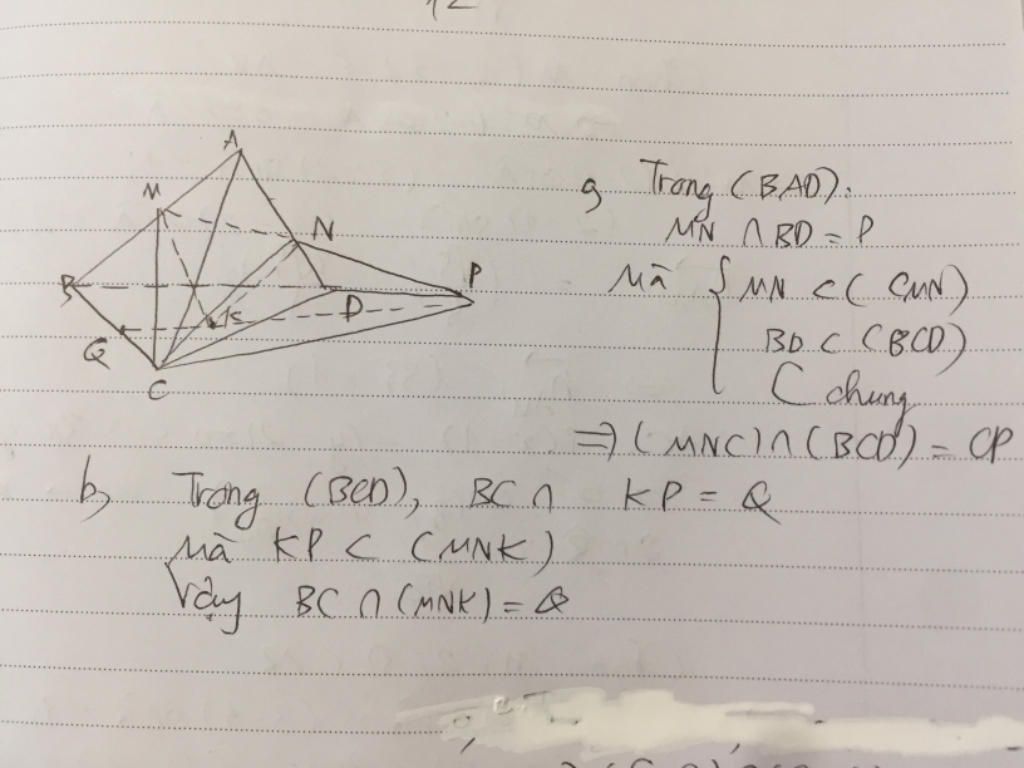 A
M
N
B
P
K
D
Q
C
a, Trong (BAD):
MN ∩ BD = P
Mà { MN ⊂ ( CMN)
BD ⊂ (BCD)
C chung
⇒ (MNC) ∩ (BCD) = CP
b, Trong (BCD), BC ∩ KP = Q
Mà KP ⊂ (MNK)
Vậy BC ∩ (MNK) = Q